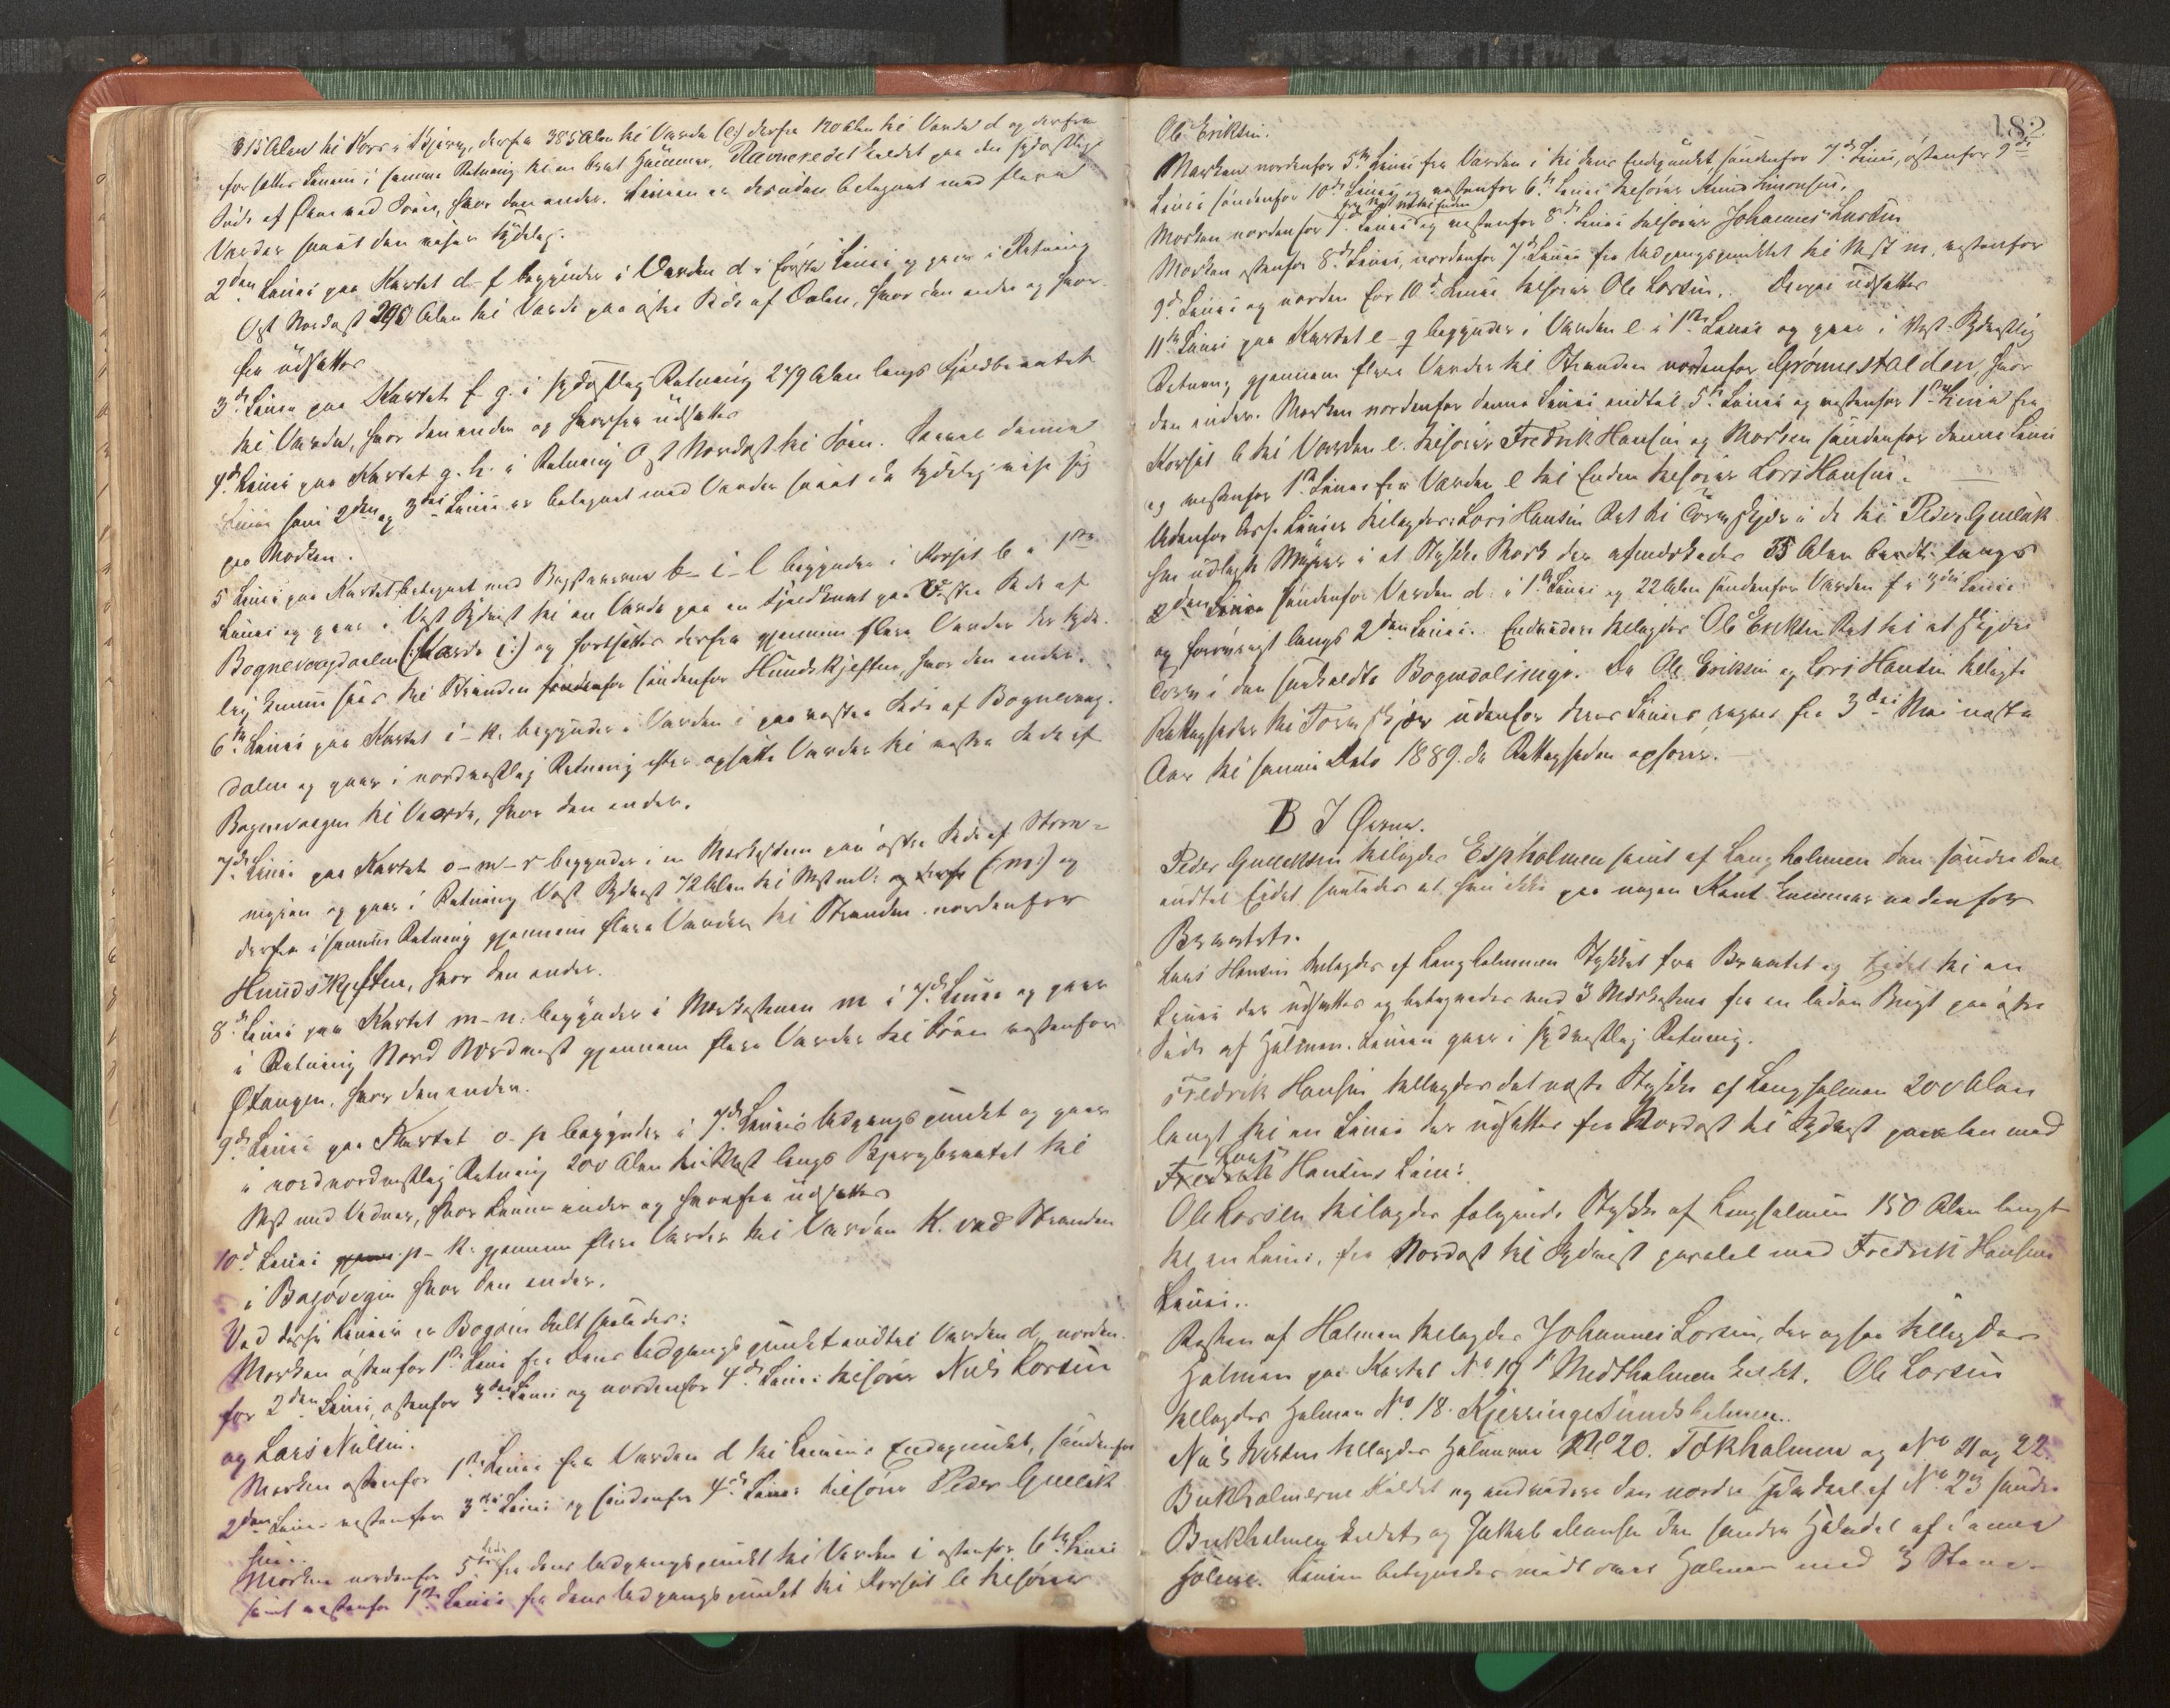 315 Alen til Kors i Bjerg, derfra 385 Alen til Varde (e:) derfra 120 Alen til Varde d og derfra
fortsætter Linien i samme Retning til en brat Hammer, Ravneredet kaldet paa den sydøstlige
Side af Øen ved Søen, hvor den ender. Linien er desuden betegnet med flere
Varder saaat den viser tydelig.
2den Linie paa Kartet d-f begynder i Varden d i første Linie og gaar i Retning
Øst Nordost 290 Alen til Varde paa østre Side af Dalen, hvor den ender og hvor-
fra udsættes
3die Linie paa Kartet f. g. i sydostlig Retning 279 Alen langs Fjeldbrattet
til Varde, hvor den ender og hvorfra udsættes
4de Linie paa Kartet g. h. i Retning Ost Nordost til Søen. Saavel denne
Linie som 2den og 3die Linie er betegnet med Varder saaat de tydelig vise sig
paa Marken.
5 Linie paa Kartet betegnet med Bogstaverne b-i-l begynder i Korset b i 1ste
Linie og gaar i Vest Sydvest til en Varde paa en Fjeldknat paa Vestre Side af
Bognevaagdalen (: Varde i:) og fortsættes derfra gjennem flere Varder der tyde-
lig kunne sees til Stranden søndenfor Hundskjeften, hvor den ender.
6te Linie paa Kartet i-k. begynder i Varden i paa vestre Side af Bognevaag-
dalen og gaar i nordvestlig Retning efter opsatte Varder til vestre Side af
Bognevaagen til Varde, hvor den ender.
7de Linie paa Kartet o-m-r begynder i en Merkesten paa østre Side af Storm-
myren og gaar i Retning Vest Sydvest 72 Alen til (:m:) og
derfra i samme Retning gjennem flere Varder til Stranden nordenfor
Hundskjeften, hvor den ender.
8de Linie paa Kartet m-n. begynder i Merkestenen m i 7de Linie og gaar
i Retning Nord Nordvest gjennem flere Varder til Søen vestenfor
Ø Langen, hvor den ender.
9de Linie paa Kartet o-p begynder i 7de Linies Udgangspunkt og gaar
i nordnordvestlig Retning 200 Alen til Nest langs Bjergbrattet til
Nest med Vidner, hvor Linien ender og hvorfra udsættes
10de Linie p-k. gjennem flere Varder til Varden K. ved Stranden
i Bogøvegin hvor den ender.
Ved disse Linier er Bogøen delt saaledes:
Marken østenfor 1ste Linie fra dens Udgangspunkt indtil Varden d, norden-
for 2den Linie, østenfor 3die Linie og nordenfor 4de Linie tilhører Nils Larsen
og Lars Nilsen.
Marken østenfor 1ste Linie fra Varden d til Linien's Endepunkt, søndenfor
2den Linie vestenfor 3die Linie og søndenfor 4de Linie tilhører Peder Gullik-
sen.
Marken nordenfor 5te Linie fra dens Udgangspunkt til Varden i østenfor 6te Linie
samt vestenfor 1ste Linie fra dens Udgangspunkt til Korset b tilhører
182
Ole Eriksen.
Marken nordenfor 5te Linie fra Varden i til dens Endepunkt, søndenfor 7de Linie, østenfor 9de
Linie søndenfor 10de Linie og vestenfor 6te Linie tilhører Knud Simonsen.
Marken nordenfor 7de Linie og vestenfor 8de Linie tilhører Johannes Larsen
Marken østenfor 8de Linie, nordenfor 7de Linie fra Udgangspunktet til Nest m, vestenfor
9de Linie og norden for 10de Linie tilhører Ole Larsen. Derpaa udsattes
11te Linie paa Kartet e-q begynder i Varden e i 1ste Linie og gaar i Vest-Sydvestlig
Retning gjennem flere Varder til Stranden nordenfor Grønnestalden, hvor
den ender. Marken nordenfor denne Linie indtil 5te Linie og vestenfor 1ste Linie fra
Korset b til Varden e. tilhører Fredrik Hansen og Marken søndenfor denne Linie
og vestenfor 1ste Linie fra Varden e til Enden tilhører Lars Hansen.
Udenfor disse Linier tillægges: Lars Hansen Ret til Torvskjær i de til Peder Gullik-
sen udlagte Myrer i et Stykke Mark der afmerkedes 55 Alen bredt langs
2den Linie søndenfor Varden d. i 1ste Linie og 22 Alen søndenfor Varden f i 3die Linie
og forøvrigt langs 2den Linie. Endvidere tillægges Ole Eriksen Ret til at skjære
Torv i den saakaldte Bognedalsmyr. De Ole Eriksen og Lars Hansen tillagte
Rettigheder til Torvskjær udenfor deres Linier regnes fra 3die Mai næste
Aar til samme Dato 1889. da Rettigheden ophører.
B I Øerne.
Peder Gulliksen tillægges Espholmen samt af Langholmen den søndre Deel
indtil Eidet saaledes at han ikke paa nogen Kant kommer nedenfor
Brattet.
Lars Hansen tillægges af Langholmen Stykket fra Brattet og Eidet til en
Linie der udsættes og betegnedes med 3 Merkestene fra en liden Bugt paa østre
Side af Holmen. Linien gaar i sydvestlig Retning.
Fredrik Hansen tillægges det næste Stykke af Langholmen 200 Alen
langt til en Linie der udsættes fra Nordost til Sydvest paralel med
Lars Hansens Linie.
Ole Larsen tillægges følgende Stykke af Langholmen 150 Alen langt
til en Linie, fra Nordost til Sydvest paralel med Fredrik Hansens
Linie..
Resten af Holmen tillægges Johannes Larsen, der ogsaa tillægges
Holmen paa Kartet No 19 Medtholmen kaldt. Ole Larsen
tillægges Holmen No. 18. Kjerringesundsholmen.
Nils Larsen tillægges Holmerne No 20. Tokholmen og No 21 og 22.
Bukholmerne kaldet og endvidere den nordre Halvdeel af No. 23 søndre
Bukholmen kaldet, og Jakob Hansen den søndre Halvdel af samme
Holme. Linien betegnedes midt over Holmen med 3 Stene.